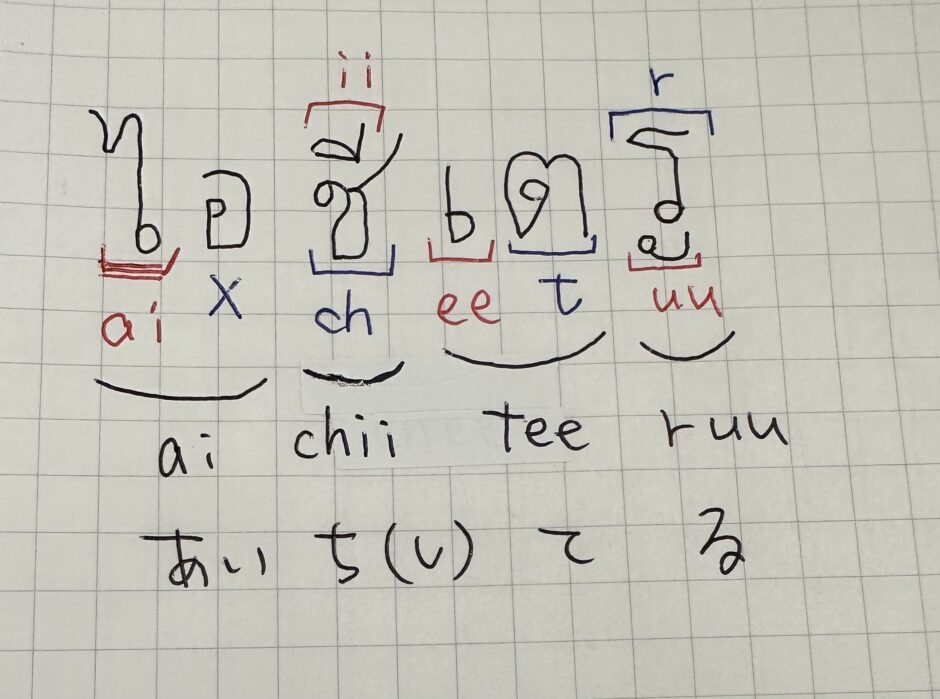 ii r
ไอ ชี เต รู
ai x ch ee t uu
ai chii tee ruu
あい ち(し) て る